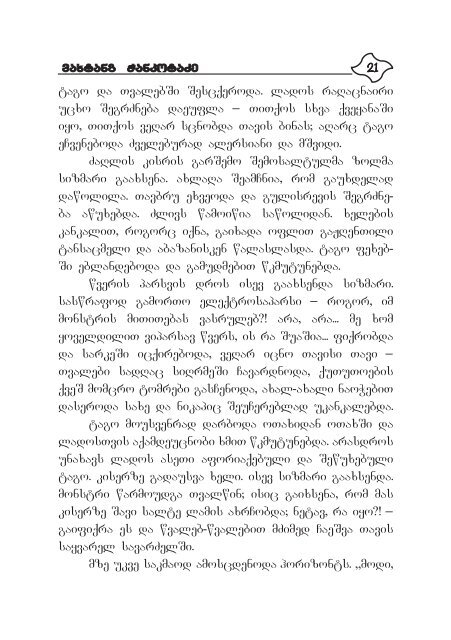 ვახტანგ ჟანკოტაძე 21
ტაგო და თვალებში შესცქეროდა. ლადოს რაღაცნაირი
უცხო შეგრძნება დაეუფლა – თითქოს სხვა ქვეყანაში
იყო, თითქოს ვეღარ სცნობდა თავის ბინას; აღარც ტაგო
ეჩვენებოდა ძველებურად ალერსიანი და მშვიდი.
ძაღლის კისრის გარშემო შემოსალტულმა ზოლმა
სიზმარი გაახსენა. ახლაღა შეამჩნია, რომ გაუხდელად
დაწოლილა. თავბრუ ეხვეოდა და გულისრევის შეგრძნე-
ბა აწუხებდა. ძლივს წამოიწია საწოლიდან. ხელების
კანკალით, როგორც იქნა, გაიხადა ოფლით გაჟღენთილი
ტანსაცმელი და აბაზანისკენ წალასლასდა. ტაგო ფეხებ-
ში ებლანდებოდა და გამუდმებით წკმუტუნებდა.
წვერის პარსვის დროს ისევ გაახსენდა სიზმარი.
სასწრაფოდ გამორთო ელექტროსაპარსი – როგორ, იმ
მონსტრის მითითებას ვასრულებ?! არა, არა... მე ხომ
ყოველდილით ვიპარსავ წვერს, ის რა შუაშია... ფიქრობდა
და სარკეში იცქირებოდა, ვეღარ იცნო თავისი თავი –
თვალები სადღაც სიღრმეში ჩავარდნოდა, ქუთუთოების
ქვეშ მომცრო ტომრები გასჩენოდა, ახალ-ახალი ნაოჭებით
დასეროდა სახე და ნიკაპიც შეუჩერებლად უკანკალებდა.
ტაგო მოუსვენრად დარბოდა ოთახიდან ოთახში და
ლადოსთვის აქამდეუცნობი ხმით წკმუტუნებდა. არასდროს
უნახავს ლადოს ასეთი აფორიაქებული და შეწუხებული
ტაგო. კისერზე გადაუსვა ხელი. ისევ სიზმარი გაახსენდა.
მონსტრი წარმოუდგა თვალწინ; ისიც გაიხსენა, რომ მას
კისერზე შავი სალტე ლამის ახრჩობდა; ნეტავ, რა იყო?! –
გაიფიქრა ეს და წვალებ-წვალებით მძიმედ ჩაეშვა თავის
საყვარელ სავარძელში.
მზე უკვე საკმაოდ ამოსცდენოდა ჰორიზონტს. „მოდი,